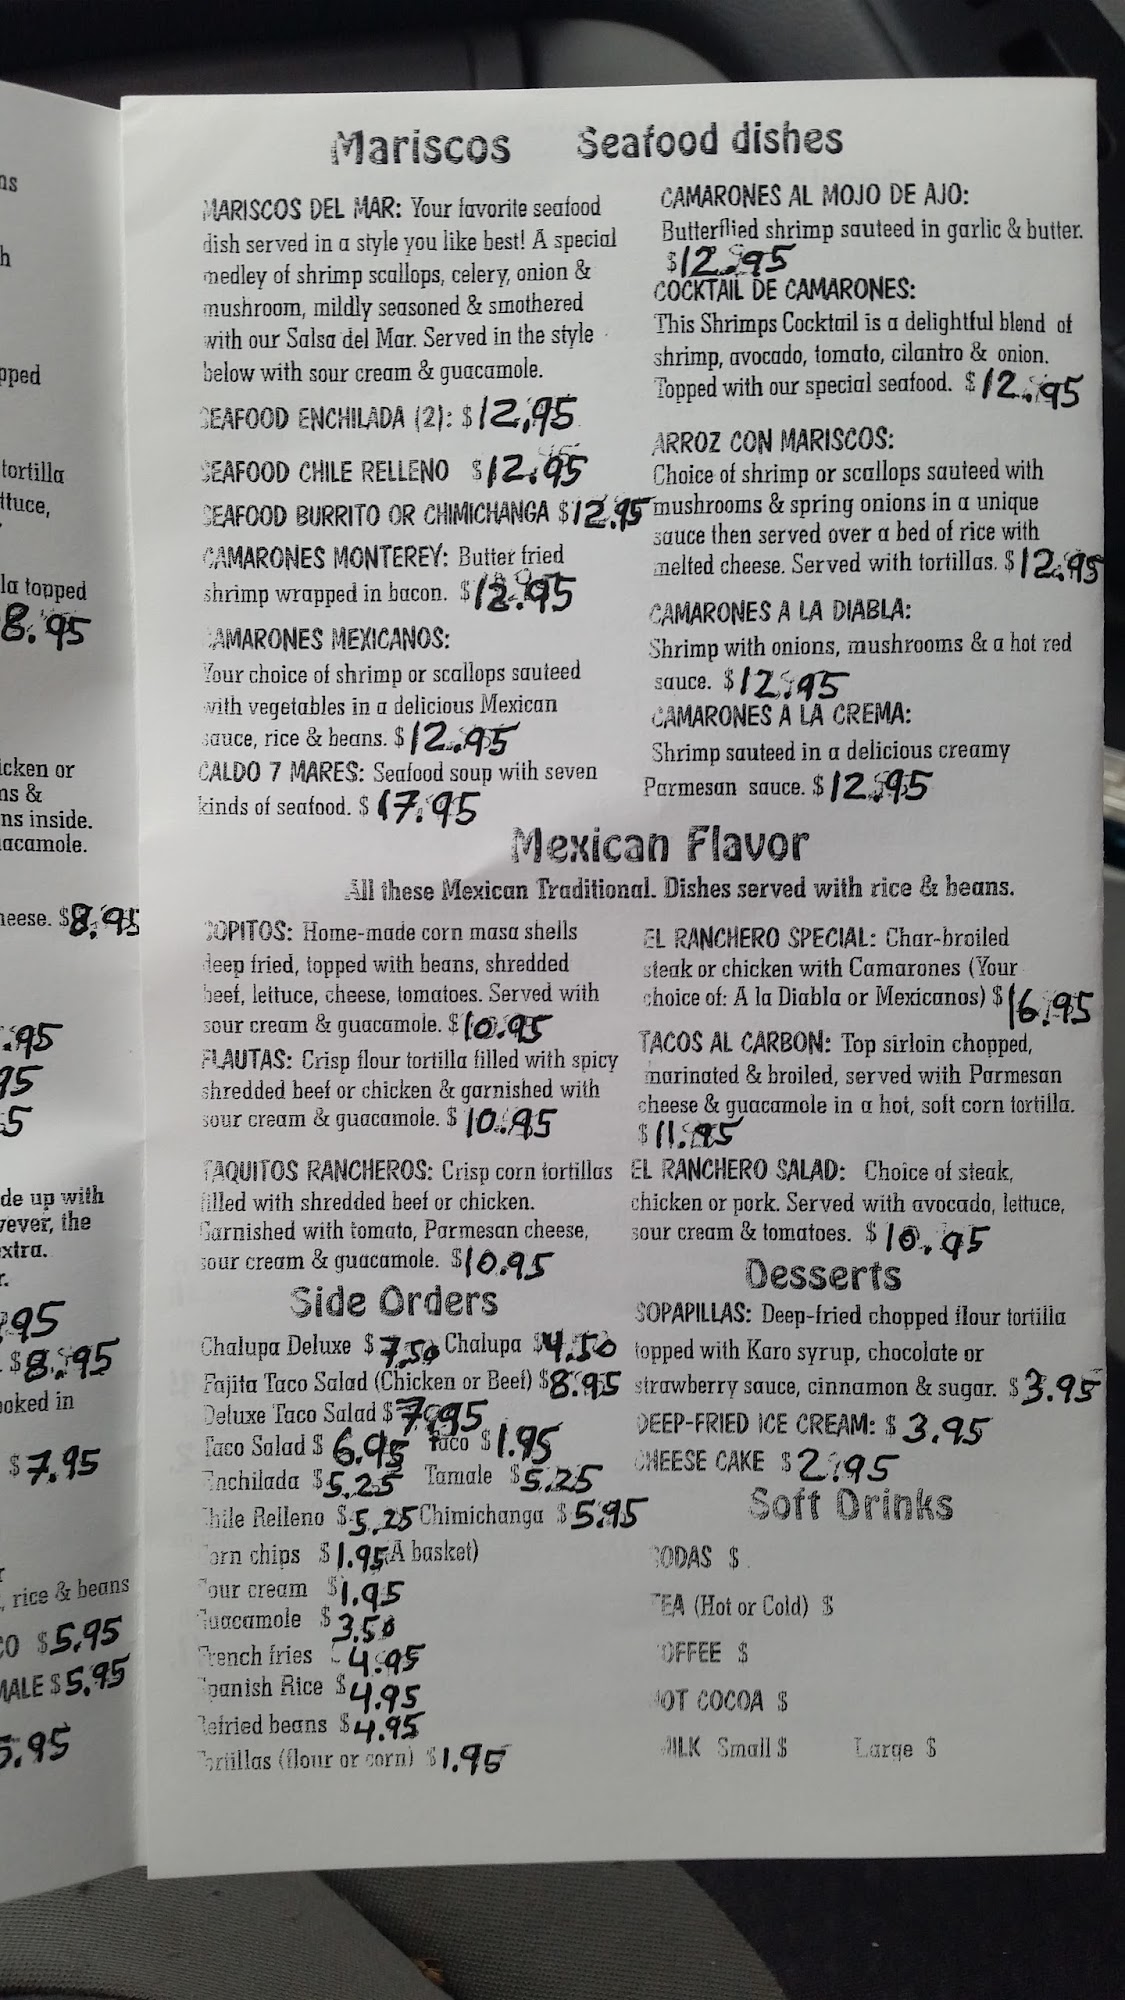 Mariscos Seafood dishes
MARISCOS DEL MAR: Your favorite seafood
dish served in a style you like best! A special
medley of shrimp scallops, celery, onion &
mushroom, mildly seasoned & smothered
with our Salsa del Mar. Served in the style
below with sour cream & guacamole.
SEAFOOD ENCHILADA (2): $12.95
SEAFOOD CHILE RELLENO $12.95
SEAFOOD BURRITO OR CHIMICHANGA $12.95
CAMARONES MONTEREY: Butter fried
shrimp wrapped in bacon. $12.95
CAMARONES MEXICANOS:
Your choice of shrimp or scallops sauteed
with vegetables in a delicious Mexican
sauce, rice & beans. $12.95
CALDO 7 MARES: Seafood soup with seven
kinds of seafood. $17.95
CAMARONES AL MOJO DE AJO:
Butterflied shrimp sauteed in garlic & butter.
$12.95
COCKTAIL DE CAMARONES:
This Shrimps Cocktail is a delightful blend of
shrimp, avocado, tomato, cilantro & onion.
Topped with our special seafood. $12.95
ARROZ CON MARISCOS:
Choice of shrimp or scallops sauteed with
mushrooms & spring onions in a unique
sauce then served over a bed of rice with
melted cheese. Served with tortillas. $12.95
CAMARONES A LA DIABLA:
Shrimp with onions, mushrooms & a hot red
sauce. $12.95
CAMARONES A LA CREMA:
Shrimp sauteed in a delicious creamy
Parmesan sauce. $12.95
Mexican Flavor
All these Mexican Traditional. Dishes served with rice & beans.
SOPITOS: Home-made corn masa shells
deep fried, topped with beans, shredded
beef, lettuce, cheese, tomatoes. Served with
sour cream & guacamole. $10.95
FLAUTAS: Crisp flour tortilla filled with spicy
shredded beef or chicken & garnished with
sour cream & guacamole. $10.95
TAQUITOS RANCHEROS: Crisp corn tortillas
filled with shredded beef or chicken.
Garnished with tomato, Parmesan cheese,
sour cream & guacamole. $10.95
EL RANCHERO SPECIAL: Char-broiled
steak or chicken with Camarones (Your
choice of: A la Diabla or Mexicanos) $16.95
TACOS AL CARBON: Top sirloin chopped,
marinated & broiled, served with Parmesan
cheese & guacamole in a hot, soft corn tortilla.
$11.95
EL RANCHERO SALAD: Choice of steak,
chicken or pork. Served with avocado, lettuce,
sour cream & tomatoes. $10.95
Side Orders
Chalupa Deluxe $7.50 Chalupa $4.50
Fajita Taco Salad (Chicken or Beef) $8.95
Deluxe Taco Salad $7.95
Taco Salad $6.95 Taco $1.95
Enchilada $5.25 Tamale $5.25
Chile Relleno $5.25 Chimichanga $5.95
Corn chips $1.95 (A basket)
Sour cream $1.95
Guacamole $3.50
French fries 4.95
Spanish Rice $4.95
Refried beans $4.95
Tortillas (flour or corn) $1.95
Desserts
SOPAPILLAS: Deep-fried chopped flour tortilla
topped with Karo syrup, chocolate or
strawberry sauce, cinnamon & sugar. $3.95
DEEP-FRIED ICE CREAM: $3.95
CHEESE CAKE $2.95
Soft Drinks
SODAS $
TEA (Hot or Cold) $
COFFEE $
HOT COCOA $
MILK Small $ Large $
tortilla
la topped
8.95
icken or
ns &
ns inside.
heese. $8.95
.95
95
5
de up with
xtra.
95
$8.95
ooked in
$7.95
, rice & beans
CO $5.95
MALE $5.95
5.95